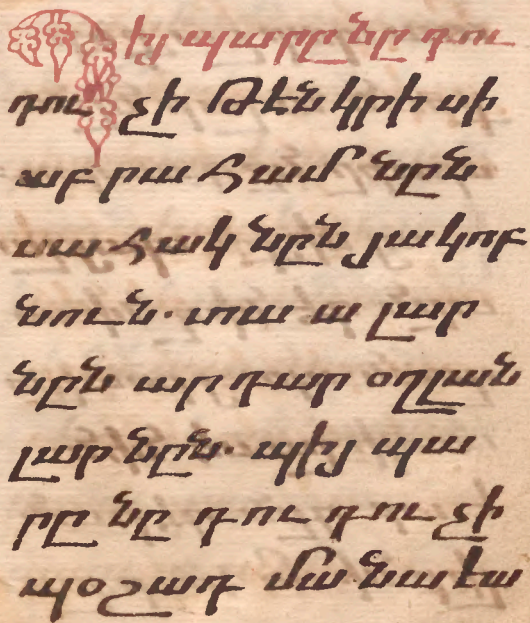 Պիյ պարը նը դու
դու չի թէն կրի սի
աբ րա համ նըն
սա հակ նըն յակոբ
նուն. տա ա լար
նըն արդար օղլան
լար նըն. պիյ պա
րը նը դու դու չի
պօշադ մա նա էա